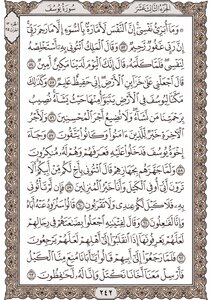 الجزء الثالث عشر سورة يوسف
وَمَا أُبَرِّئُ نَفْسِي إِنَّ النَّفْسَ لَأَمَّارَةٌ بِالسُّوءِ إِلَّا مَا رَحِمَ رَبِّي
إِنَّ رَبِّي غَفُورٌ رَحِيمٌ ٥٣ وَقَالَ الْمَلِكُ ائْتُونِي بِهِ أَسْتَخْلِصْهُ
لِنَفْسِي فَلَمَّا كَلَّمَهُ قَالَ إِنَّكَ الْيَوْمَ لَدَيْنَا مَكِينٌ أَمِينٌ ٥٤
قَالَ اجْعَلْنِي عَلَى خَزَائِنِ الْأَرْضِ إِنِّي حَفِيظٌ عَلِيمٌ ٥٥ وَكَذَلِكَ
مَكَّنَّا لِيُوسُفَ فِي الْأَرْضِ يَتَبَوَّأُ مِنْهَا حَيْثُ يَشَاءُ نُصِيبُ
بِرَحْمَتِنَا مَنْ نَشَاءُ وَلَا نُضِيعُ أَجْرَ الْمُحْسِنِينَ ٥٦ وَلَأَجْرُ
الْآخِرَةِ خَيْرٌ لِلَّذِينَ آمَنُوا وَكَانُوا يَتَّقُونَ ٥٧ وَجَاءَ
إِخْوَةُ يُوسُفَ فَدَخَلُوا عَلَيْهِ فَعَرَفَهُمْ وَهُمْ لَهُ مُنْكِرُونَ ٥٨
وَلَمَّا جَهَّزَهُمْ بِجَهَازِهِمْ قَالَ ائْتُونِي بِأَخٍ لَكُمْ مِنْ أَبِيكُمْ أَلَا
تَرَوْنَ أَنِّي أُوفِي الْكَيْلَ وَأَنَا خَيْرُ الْمُنْزِلِينَ ٥٩ فَإِنْ لَمْ تَأْتُونِي
بِهِ فَلَا كَيْلَ لَكُمْ عِنْدِي وَلَا تَقْرَبُونِ ٦٠ قَالُوا سَنُرَاوِدُ عَنْهُ أَبَاهُ
وَإِنَّا لَفَاعِلُونَ ٦١ وَقَالَ لِفِتْيَانِهِ اجْعَلُوا بِضَاعَتَهُمْ فِي رِحَالِهِمْ
لَعَلَّهُمْ يَعْرِفُونَهَا إِذَا انْقَلَبُوا إِلَى أَهْلِهِمْ لَعَلَّهُمْ يَرْجِعُونَ
٦٢ فَلَمَّا رَجَعُوا إِلَى أَبِيهِمْ قَالُوا يَا أَبَانَا مُنِعَ مِنَّا الْكَيْلُ
فَأَرْسِلْ مَعَنَا أَخَانَا نَكْتَلْ وَإِنَّا لَهُ لَحَافِظُونَ ٦٣
٢٤٢